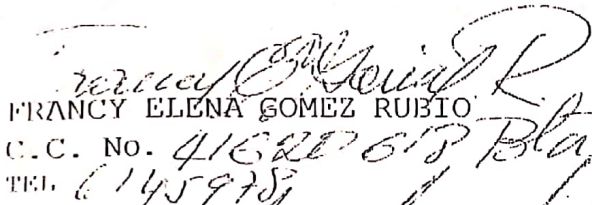 Francy E. Gomez R.
FRANCY ELENA GOMEZ RUBIO
C.C. No. 41620 618 Bta
TEL 6145978